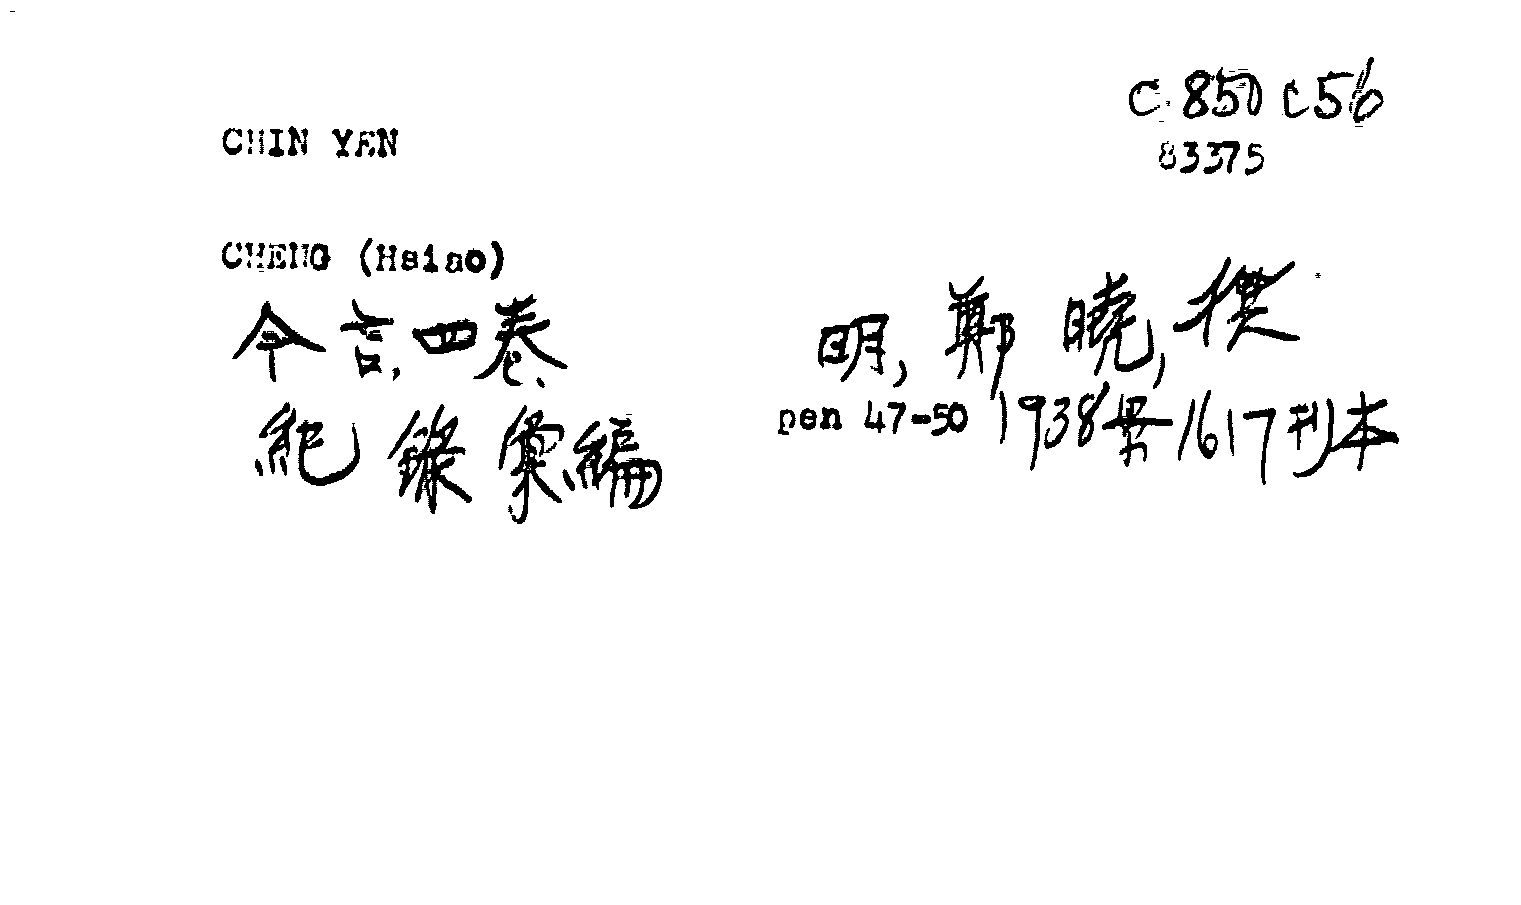 C 850 C56
CHIN YEN
83375
CHENG (Hsiao)
今言, 四卷 明, 鄭曉, 撰
紀錄彙編 pen 47-50 1938 1617刊本